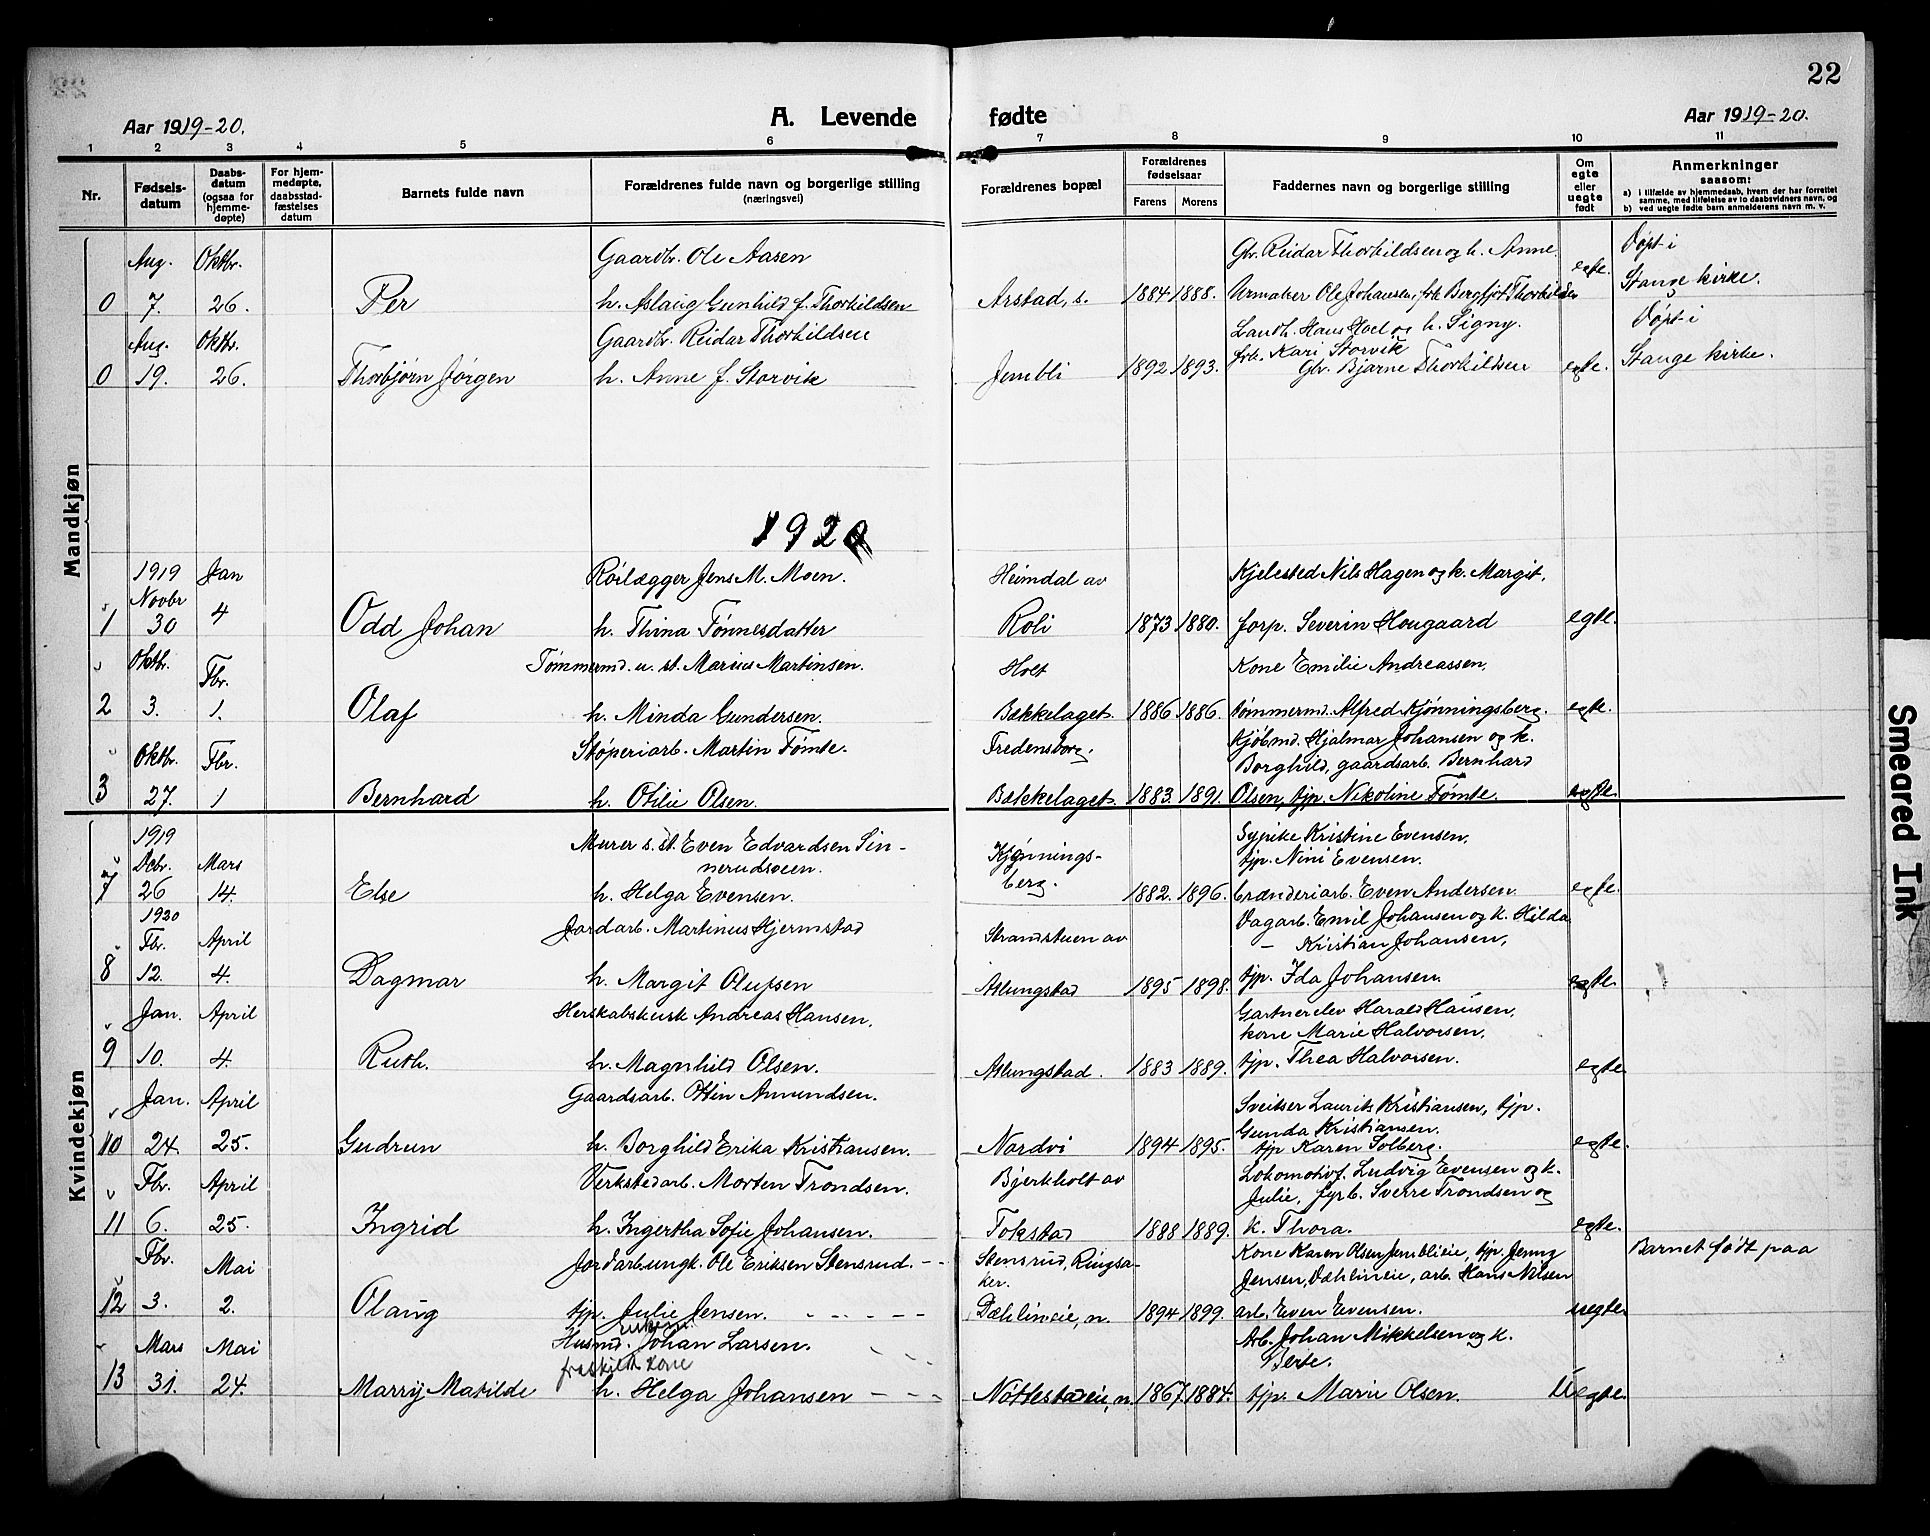 22
Aar 1919-20.
A. Levende fødte
Aar 1919-20.
1 2 3 4 5 6 7 8 9 10 11
Nr.
Fødsels-
datum
Daabs-
datum
(ogsaa for
hjemme-
døpte)
For hjem-
medøpte,
daabsstad-
fæstelses
datum
Barnets fulde navn
Forældrenes fulde navn og borgerlige stilling
(næringsvei)
Forældrenes bopæl
Forældrenes
fødselsaar
Farens Morens
Faddernes navn og borgerlige stilling
Om
egte
eller
uegte
født
Anmerkninger
saasom:
a) i tilfælde av hjemmedaab, hvem der har forrettet
samme, med tilføielse av to daabsvidners navn, og
b) ved uegte fødte barn anmelderens navn m. v.
Mandkjøn
Aug. Oktbr. Gaardbr. Ole Aasen Gbr. Reidar Thorkildsen og h. Anne. Døpt i
0 7. 26. Per h. Aslaug Gunhild f. Thorkildsen Arstad, s. 1884 1888. Urmaker Ole Johansen, frk Bergljot Thorkildsen egte. Stange kirke.
Aug. Oktbr. Gaardbr. Reidar Thorkildsen Landh. Hans Hoel og h. Signy. Døpt i
frk. Kari Storvik
0 19. 26. Thorbjørn Jørgen h. Anne f. Storvik Jembli 1892 1893. Gbr. Bjarne Thorkildsen egte. Stange kirke.
1920
1919 Jan Rørlægger Jens M. Moen. Heimdal av Kjelested Nils Hagen og k. Margit.
Novbr
1 30 4 Odd Johan h. Thina Tønnesdatter Roli 1873 1880. forp. Severin Hougaard egte.
Oktbr. Fbr. Tømmermd. u. st. Marius Martinsen. Holt Kone Emilie Andreassen.
2 3. 1. Olaf h. Minda Gundersen. Bækkelaget 1886 1886. tømmermd. Alfred Kjønningsberg. egte.
Oktbr. Fbr. Støperiarb. Martin Tømte. Fredensborg. Kjøbmd. Hjalmar Johansen og k.
Borghild, gaardsarb. Bernhard
3 27. 1 Bernhard h. Otilie Olsen. Bækkelaget 1883. 1891. Olsen, tjp. Nikoline Tømte. egte
Kvindekjøn
1919 Murer s. st. Even Edvardsen Sin- Sypike Kristine Evensen,
Debr. Mars nerudsveen. Kjønnings- tjp. Nini Evensen.
7 26 14. Else h. Helga Evensen. berg. 1882. 1896. brænderiarb. Even Andersen egte.
1920 Jordarb. Martinus Hjermstad Strandstuen av Vagarb. Emil Johansen og k. Hilda
Fbr. April — Kristian Johansen,
8 12. 4. Dagmar h. Margit Olufsen Aslungstad 1895 1898. tjp. Ida Johansen. egte.
Jan. April Herskabskusk Andreas Hansen. Gartnerelev Harald Hansen,
kone Marie Halvorsen,
9 10. 4. Ruth. h. Magnhild Olsen. Aslungstad. 1883 1889. tjp. Thea Halvorsen. egte
Jan. April Gaardsarb. Ottin Amundsen. Sveitser Laurits Kristiansen, tjp.
Gunda Kristiansen.
10 24. 25. Gudrun h. Borghild Erika Kristiansen. Nordvi 1894 1895. tjp Karen Solberg. egte.
Fbr. April Verkstedarb. Morten Trondsen. Bjerkholt av Lokomotivf. Ludvig Evensen og k.
Julie, fyrb. Sverre Trondsen og
11 6. 25. Ingrid h. Ingertha Sofie Johansen. Tokstad 1888 1889. k. Thora. egte.
Fbr. Mai Jordarb. ungk. Ole Eriksen Stensrud. Stensrud, Ringsa- Kone Karen Olsen Jemblieie, tjp. Jenny Barnet født paa
ker. Jensen, Dæhlineie, arb. Hans Nilsen
12 3. 2. Olaug tjp. Julie Jensen. Dæhlineie, n. 1894 1899. arb. Even Evensen. uegte
Mars Mai Husmd. enkem. Johan Larsen. Arb. Johan Mikkelsen og k.
fraskilt kone Berte.
13 31. 24. Marry Matilde h. Helga Johansen Nøttestadeie, n. 1867. 1884. tjp. Marie Olsen. Uegte.
Smeared Ink